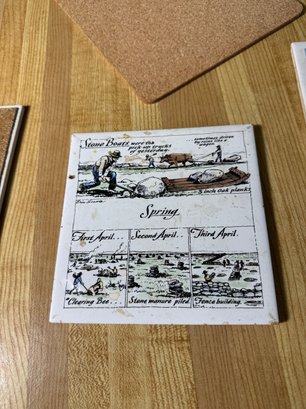 Stone Boats were the
pick-up trucks
of yesterday.
sometimes driven
by reins like a
wagon
3 inch Oak planks
Eric Sloane
Spring
First April...
Second April...
Third April..
"Clearing Bee...
Stone manure piled
Fence building.